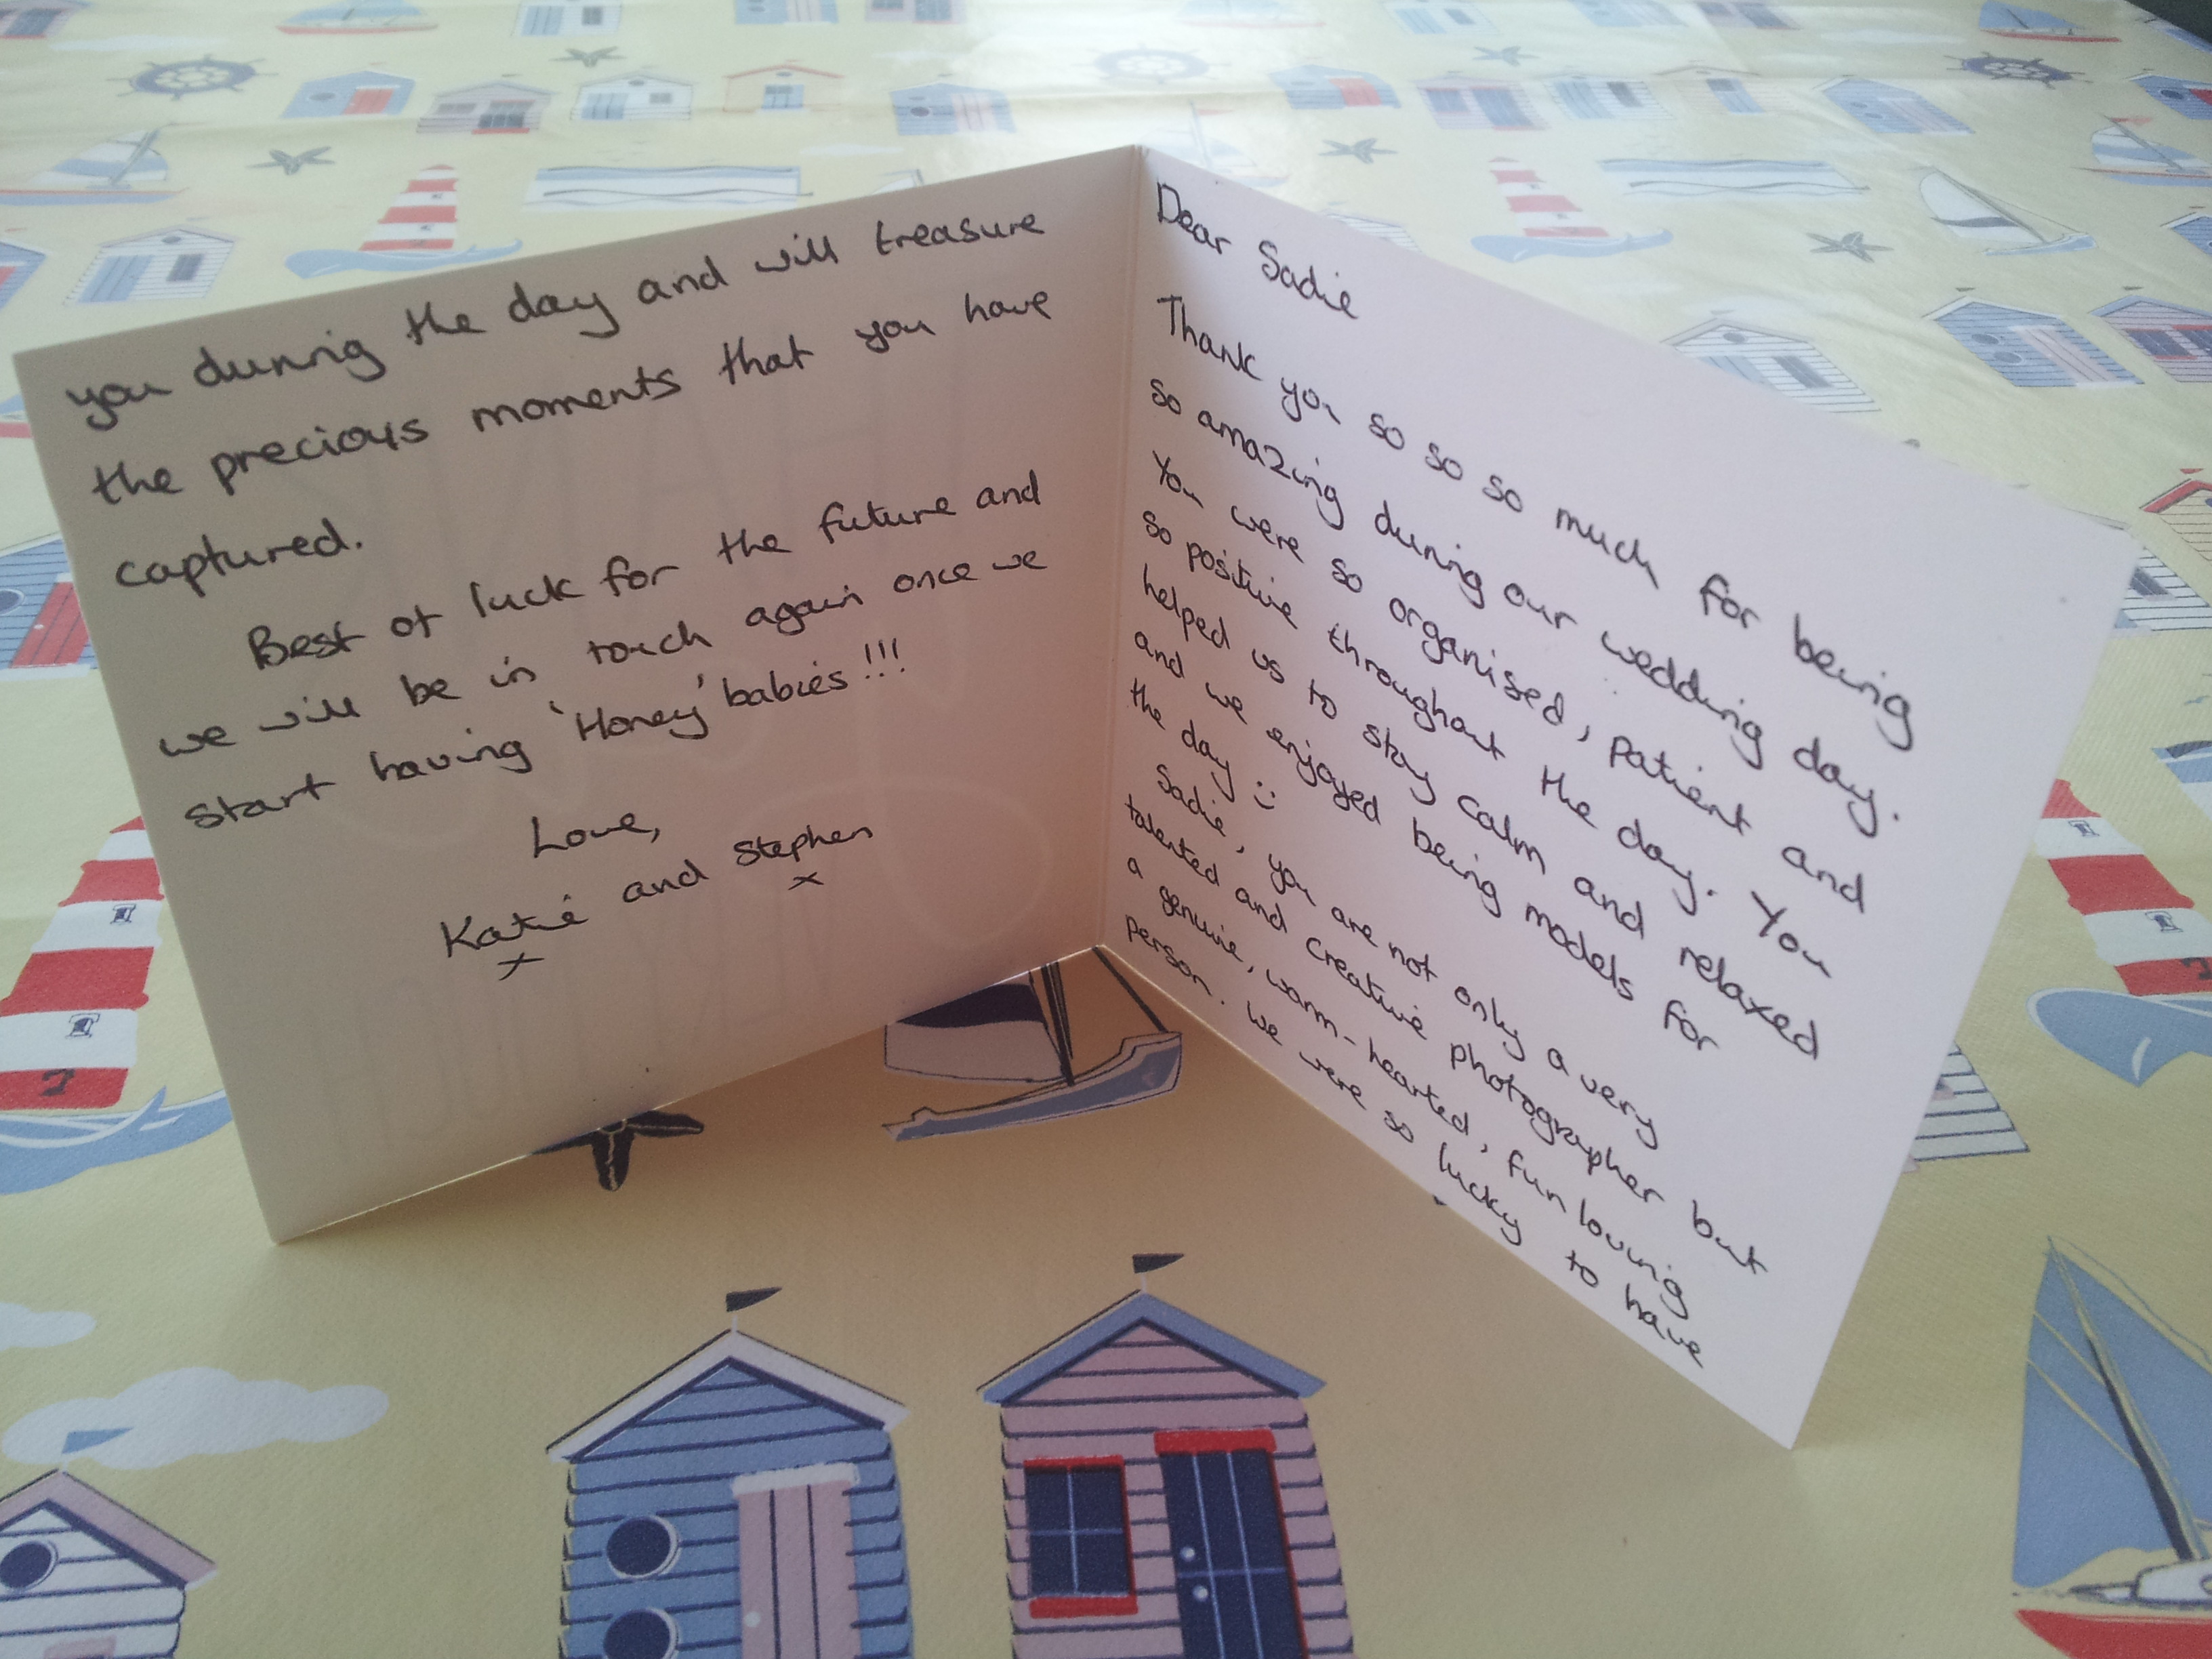 Dear Sadie
Thank you so so so much for being
so amazing during our wedding day.
You were so organised, patient and
so positive throughout the day. You
helped us to stay calm and relaxed
and we enjoyed being models for
the day :)
Sadie, you are not only a very
talented and creative photographer but
a genuine, warm-hearted, fun loving
person. We were so lucky to have
you during the day and will treasure
the precious moments that you have
captured.
Best of luck for the future and
we will be in touch again once we
start having 'Honey' babies!!!
Love,
Katie and Stephen
x x